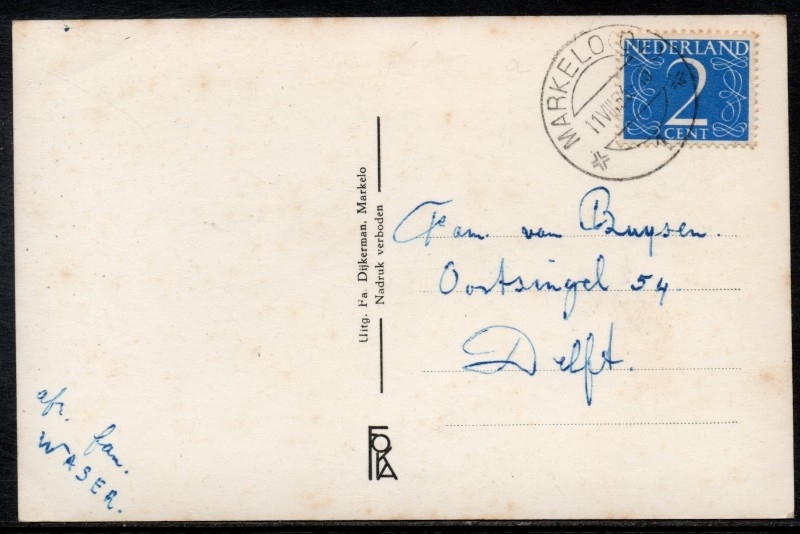 MARKELO
11 VIII
NEDERLAND
2
CENT
Uitg. Fa. Dijkerman, Markelo
Nadruk verboden
Fam. van Buysen.
Oortsingel 54
Delft.
afz. fam.
WASER.
FOKA